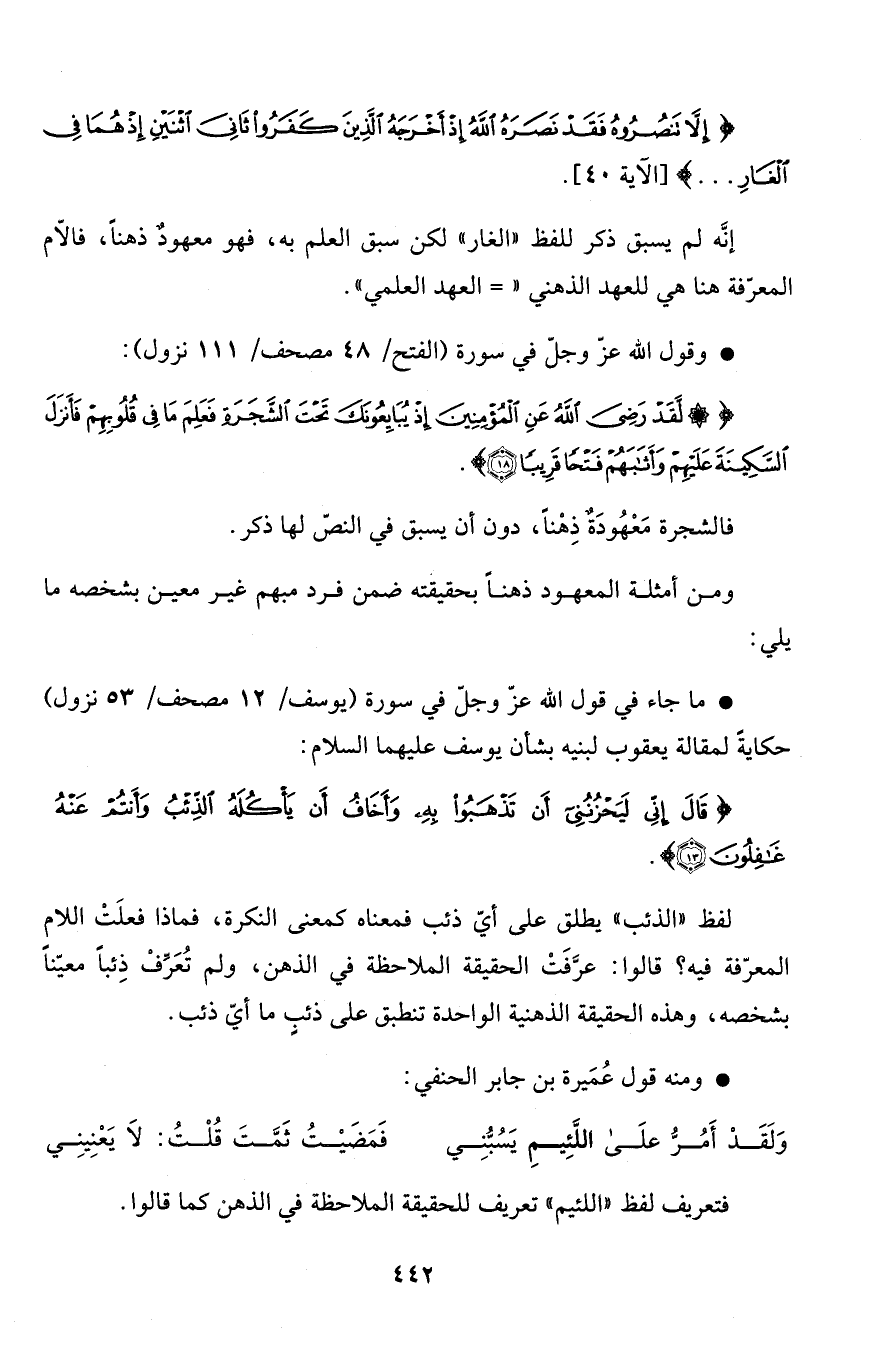 ﴿ إِلَّا تَنصُرُوهُ فَقَدْ نَصَرَهُ ٱللَّهُ إِذْ أَخْرَجَهُ ٱلَّذِينَ كَفَرُوا۟ ثَانِىَ ٱثْنَيْنِ إِذْ هُمَا فِى
ٱلْغَارِ . . . ﴾ [الآية ٤٠].
إنَّه لم يسبق ذكر للفظ «الغار» لكن سبق العلم به، فهو معهودٌ ذهناً، فالاّم
المعرّفة هنا هي للعهد الذهني « = العهد العلمي».
● وقول الله عزّ وجلّ في سورة (الفتح/ ٤٨ مصحف/ ١١١ نزول):
﴿ ۞ لَّقَدْ رَضِىَ ٱللَّهُ عَنِ ٱلْمُؤْمِنِينَ إِذْ يُبَايِعُونَكَ تَحْتَ ٱلشَّجَرَةِ فَعَلِمَ مَا فِى قُلُوبِهِمْ فَأَنزَلَ
ٱلسَّكِينَةَ عَلَيْهِمْ وَأَثَٰبَهُمْ فَتْحًا قَرِيبًا ١٨ ﴾ .
فالشجرة مَعْهُودَةٌ ذِهْناً، دون أن يسبق في النصّ لها ذكر.
ومن أمثلة المعهود ذهناً بحقيقته ضمن فرد مبهم غير معين بشخصه ما
يلي:
● ما جاء في قول الله عزّ وجلّ في سورة (يوسف/ ١٢ مصحف/ ٥٣ نزول)
حكايةً لمقالة يعقوب لبنيه بشأن يوسف عليهما السلام:
﴿ قَالَ إِنِّى لَيَحْزُنُنِىٓ أَن تَذْهَبُوا۟ بِهِۦ وَأَخَافُ أَن يَأْكُلَهُ ٱلذِّئْبُ وَأَنتُمْ عَنْهُ
غَٰفِلُونَ ١٣ ﴾ .
لفظ «الذئب» يطلق على أيّ ذئب فمعناه كمعنى النكرة، فماذا فعلَتْ اللام
المعرّفة فيه؟ قالوا: عرَّفَتْ الحقيقة الملاحظة في الذهن، ولم تُعَرِّفْ ذِئباً معيّناً
بشخصه، وهذه الحقيقة الذهنية الواحدة تنطبق على ذئبٍ ما أيّ ذئب.
● ومنه قول عُمَيرة بن جابر الحنفي:
وَلَقَدْ أَمُرُّ علَىٰ اللَّئِيمِ يَسُبُّنِي فَمَضَيْتُ ثَمَّتَ قُلْتُ: لاَ يَعْنِينِي
فتعريف لفظ «اللئيم» تعريف للحقيقة الملاحظة في الذهن كما قالوا.
٤٤٢